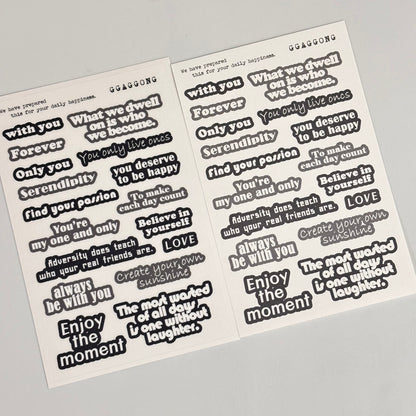 We have prepared
this for your daily happiness.
GGAGGONG
with you
What we dwell
on is who
we become.
Forever
You only live once
Only you
you deserve
to be happy
Serendipity
To make
each day count
find your passion
You're
my one and only
Believe in
yourself
Adversity does teach
who your real friends are.
LOVE
always
be with you
Create your own
sunshine
Enjoy
the
moment
The most wasted
of all days
is one without
laughter.
We have prepared
this for your daily happiness.
GGAGGONG
with you
What we dwell
on is who
we become.
Forever
You only live once
Only you
you deserve
to be happy
Serendipity
To make
each day count
find your passion
You're
my one and only
Believe in
yourself
Adversity does teach
who your real friends are.
LOVE
always
be with you
Create your own
sunshine
Enjoy
the
moment
The most wasted
of all days
is one without
laughter.